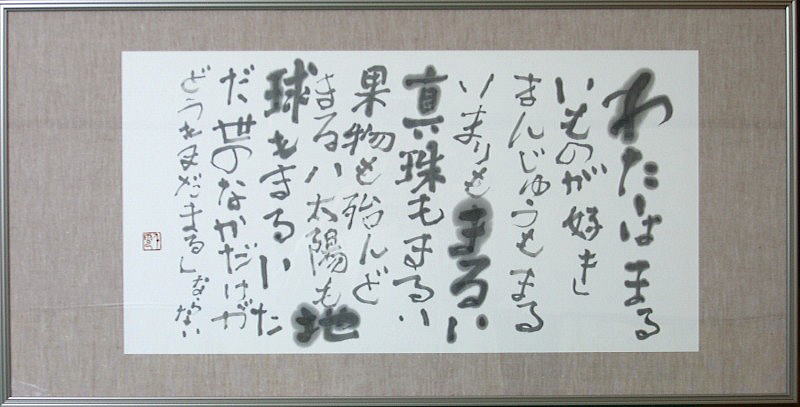 わたしはまる
いものが好き
まんじゅうもまる
いまりもまるい
真珠もまるい
果物も殆んど
まるい太陽も地
球もまるいた
だ世のなかだけが
どうもまだまるくならない